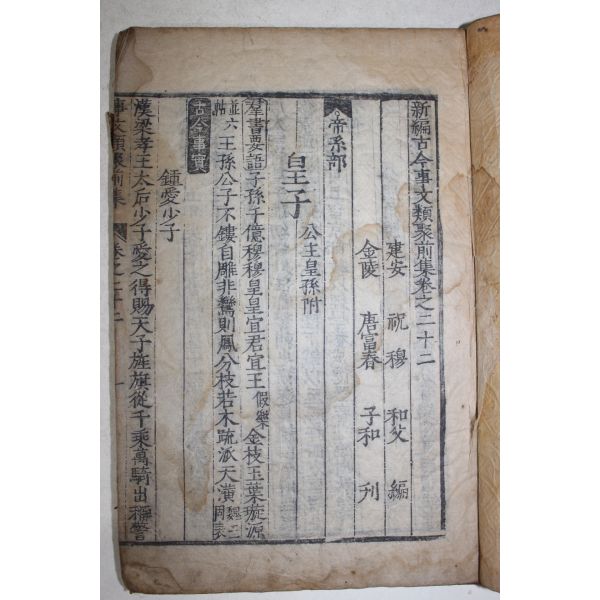 新編古今事文類聚前集卷之二十二
建安 祝穆 和父 編
金陵 唐富春 子和 刊
帝系部
皇子 公主皇孫附
羣書要語 子孫千億穆穆皇皇宜君宜王 假樂 金枝玉葉璇源
並六 帖 王孫公子不鏤自雕非鸞則鳳分枝若木疏派天潢
古今事實
鍾愛少子
漢梁孝王太后少子愛之得賜天子旌旗從千乘萬騎出稱警
事文類聚前集 卷之二十二 一